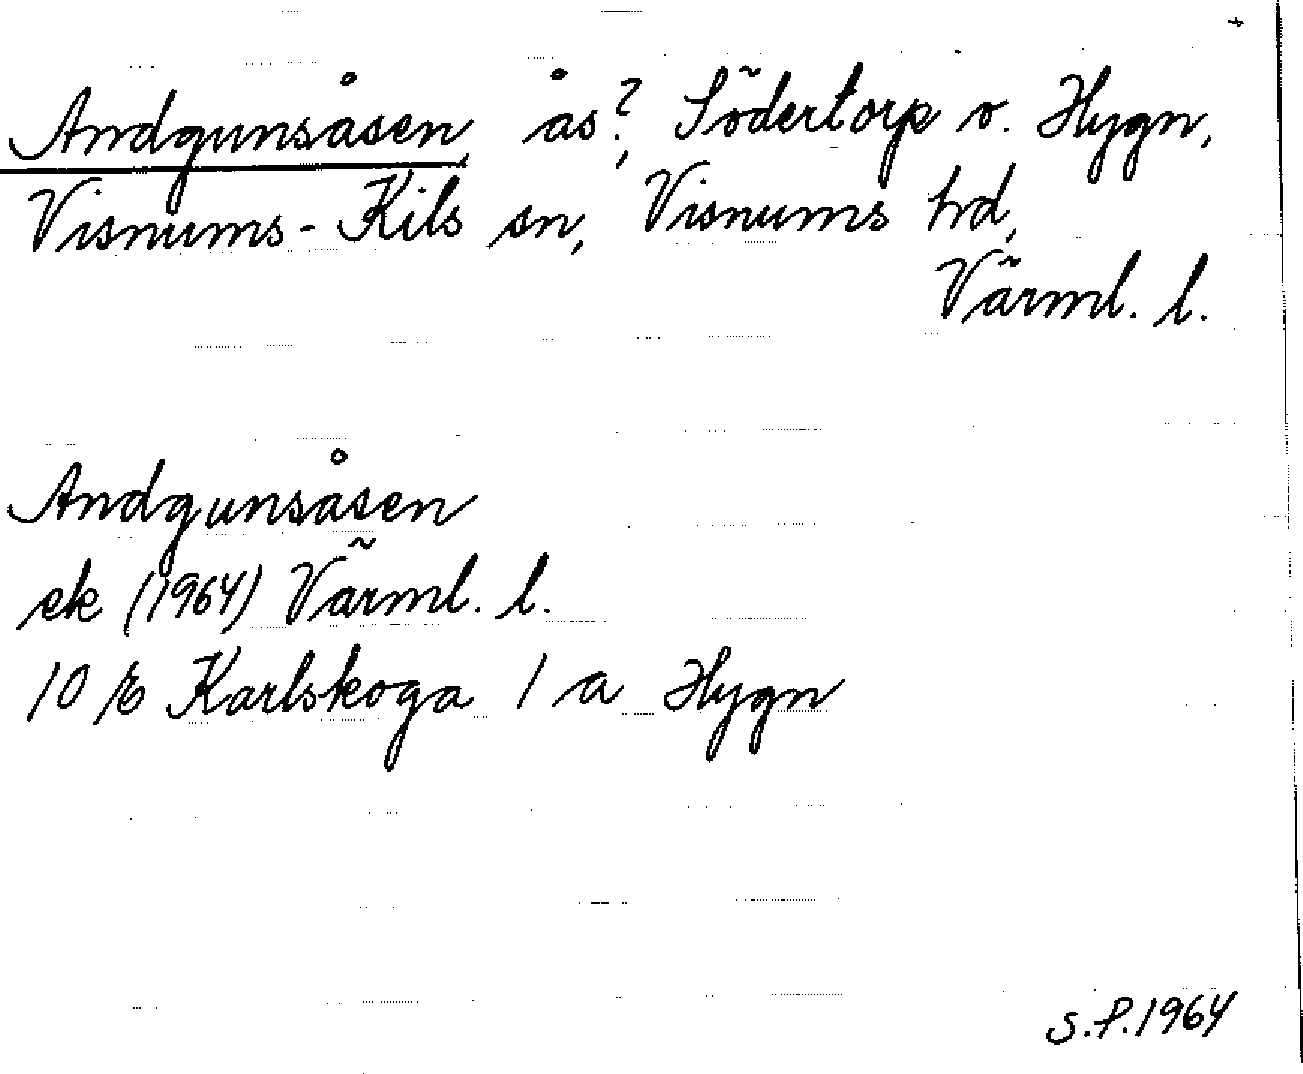 Andgunsåsen, ås?, Södertorp o. Hygn,
Visnums-Kils sn, Visnums hd,
Värml. l.
Andgunsåsen
ek (1964) Värml. l.
10 E Karlskoga 1 a Hygn
S.P. 1964